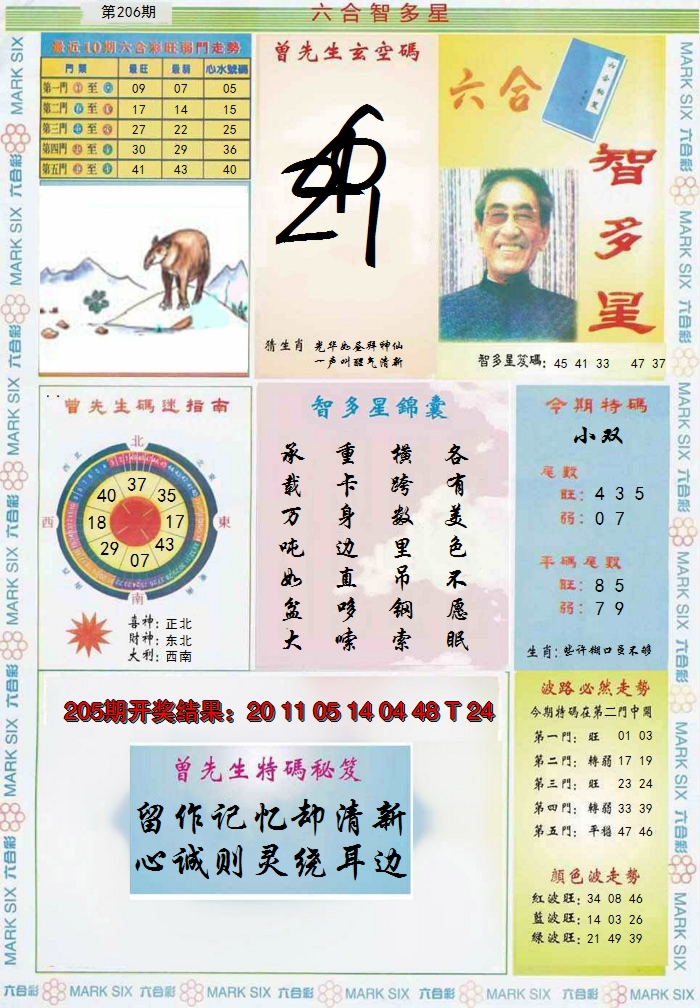 第206期
六合智多星
最近10期六合彩旺弱門走勢
門類 最旺 最弱 心水號碼
第一門 至 09 07 05
第二門 至 17 14 15
第三門 至 27 22 25
第四門 至 30 29 36
第五門 至 41 43 40
曾先生玄空碼
猜生肖 光华如昼拜神仙
一声叫醒气清新
六合
智多星
智多星笈碼: 45 41 33 47 37
曾先生碼迷指南
北
西 東
南
40 37 35
18 17
29 07 43
喜神: 正北
财神: 东北
大利: 西南
智多星錦囊
各有美色不愿眠
橫跨数里吊钢索
重卡身边直哆嗦
承载万吨如盆大
今期特碼
小双
尾數
旺: 4 3 5
弱: 0 7
平碼尾數
旺: 8 5
弱: 7 9
生肖: 些许糊口更不够
205期开奖结果: 20 11 05 14 04 48 T 24
曾先生特碼秘笈
留作记忆却清新
心诚则灵绕耳边
波路必然走勢
今期特碼在第二門中開
第一門: 旺 01 03
第二門: 轉弱 17 19
第三門: 旺 23 24
第四門: 轉弱 33 39
第五門: 平穩 47 46
顏色波走勢
紅波旺: 34 08 46
藍波旺: 14 03 26
綠波旺: 21 49 39
MARK SIX 六合彩